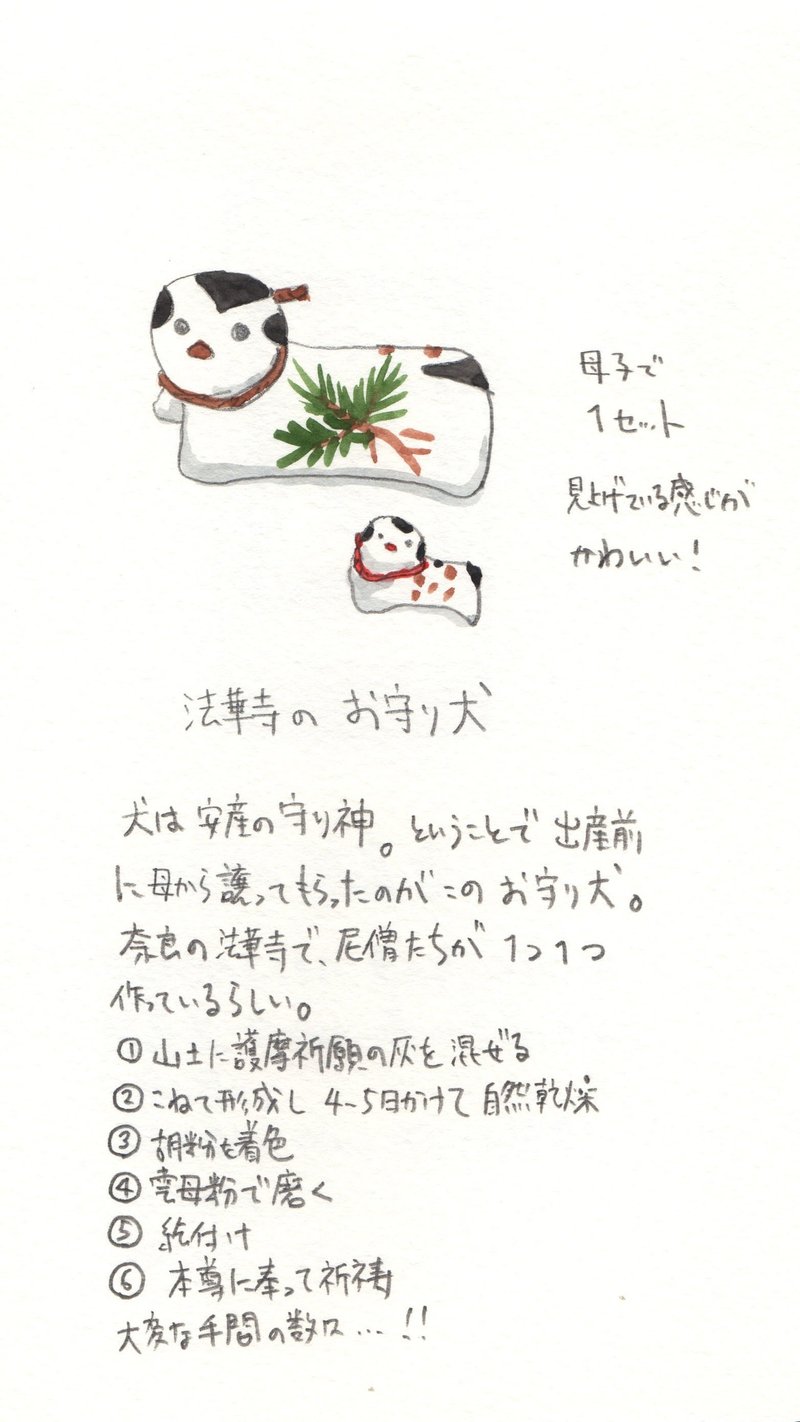 母子で
1セット
見上げている感じが
かわいい!
法華寺の お守り犬
犬は 安産の守り神。ということで 出産前
に母から譲ってもらったのがこの お守り犬。
奈良の法華寺で、尼僧たちが 1つ1つ
作っているらしい。
① 山土に護摩祈願の灰を混ぜる
② こねて形成し 4~5日かけて 自然乾燥
③ 胡粉を着色
④ 雲母粉で磨く
⑤ 絵付け
⑥ 本尊に奉って祈祷
大変な手間の数々…!!